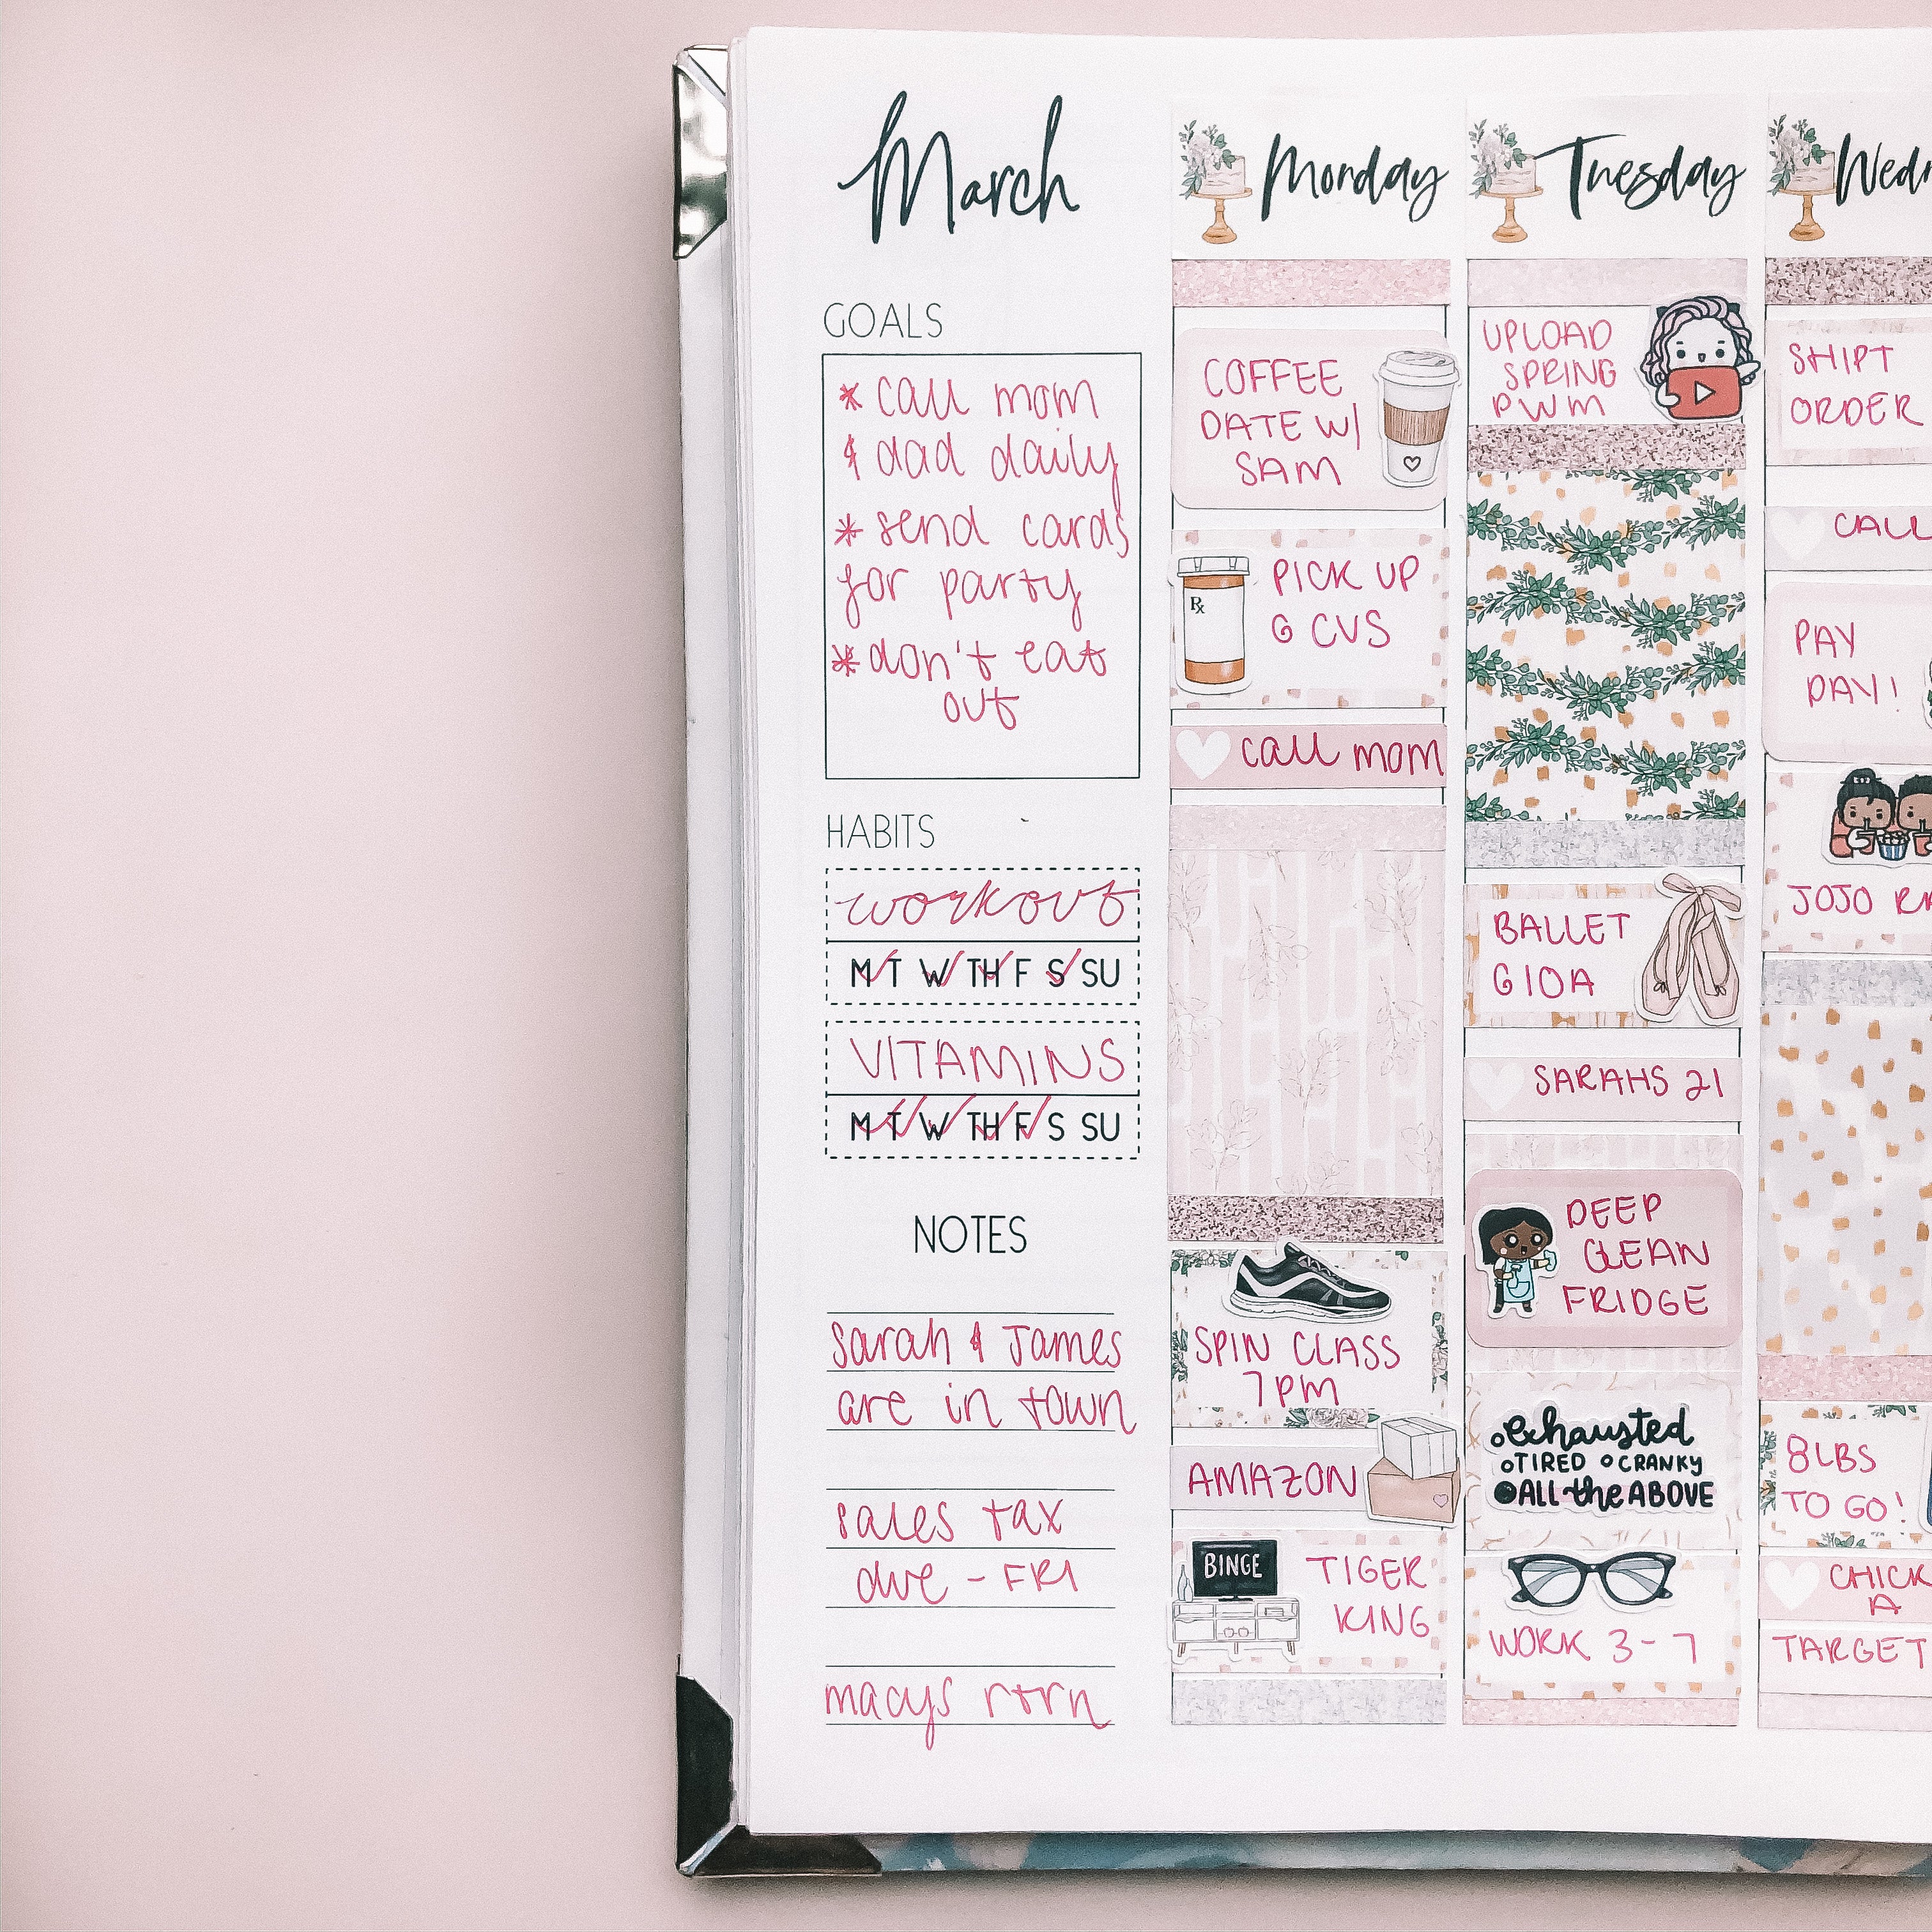 March
GOALS
* call mom
& dad daily
* send cards
for party
* don't eat
out
HABITS
workout
M T W TH F S SU
VITAMINS
M T W TH F S SU
NOTES
Sarah & James
are in town
sales tax
due - FRI
macys rtrn
Monday
COFFEE
DATE W/
SAM
Rx
PICK UP
@ CVS
call mom
SPIN CLASS
7PM
AMAZON
BINGE
TIGER
KING
Tuesday
UPLOAD
SPRING
PWM
BALLET
@ 10A
SARAHS 21
DEEP
CLEAN
FRIDGE
exhausted
TIRED CRANKY
ALL the ABOVE
WORK 3-7
Wedn
SHIPT
ORDER
CALL
PAY
DAY!
JOJO
8LBS
TO GO!
CHICK
A
TARGET